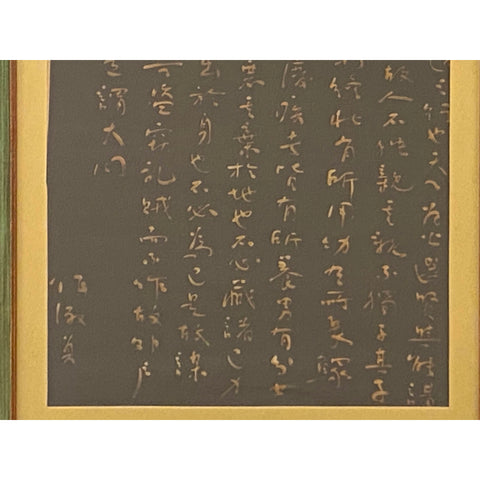 之行也天下為公選賢與能講
故人不獨親其親不獨子其子
所終壯有所用幼有所長鰥
廢疾者皆有所養男有分女
惡其棄於地也不必藏諸己力
出於身也不必為己是故謀
盜竊亂賊而不作故外戶
是謂大同